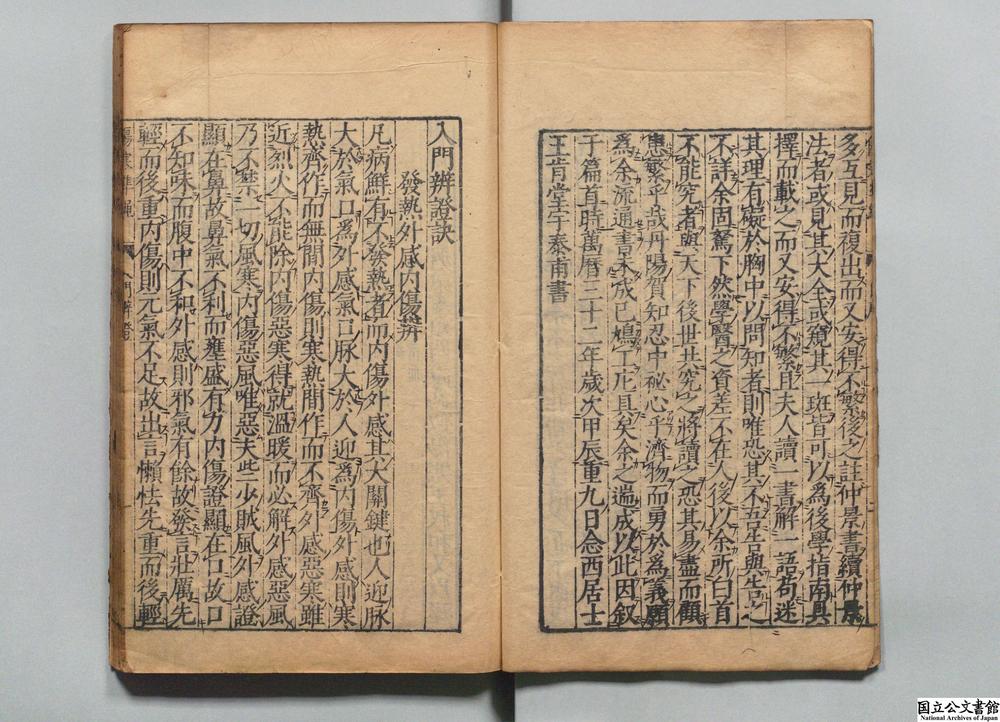 多互見而複出而又安得不繁後之註仲景書續仲景
法者或見其大全或窺其一斑皆可以為後學指南具
擇而載之而又安得不繁且夫人讀一書解一語苟迷
其理有礙於胸中以問知者則唯恐其不吾告與告之
不詳余固駑下然學醫之資差不在人後以余所白首
不能究者與天下後世共究之將讀之恐其易盡而顧
患繁乎哉丹陽賀知忍中祕心乎濟物而勇於為義願
為余流通書未成已鳩工庀具矣余之遄成以此因叙
于篇首時萬曆三十二年歲次甲辰重九日念西居士
王肯堂宇泰甫書
入門辨證訣
發熱外感內傷辨
凡病鮮有不發熱者而內傷外感其大關鍵也人迎脉
大於氣口為外感氣口脉大於人迎為內傷外感則寒
熱齊作而無間內傷則寒熱間作而不齊外感惡寒雖
近烈火不能除內傷惡寒得就溫暖而必解外感惡風
乃不禁一切風寒內傷惡風唯惡夫些少賊風外感證
顯在鼻故鼻氣不利而壅盛有力內傷證顯在口故口
不知味而腹中不和外感則邪氣有餘故發言壯厲先
輕而後重內傷則元氣不足故出言懶怯先重而後輕
国立公文書館
National Archives of Japan